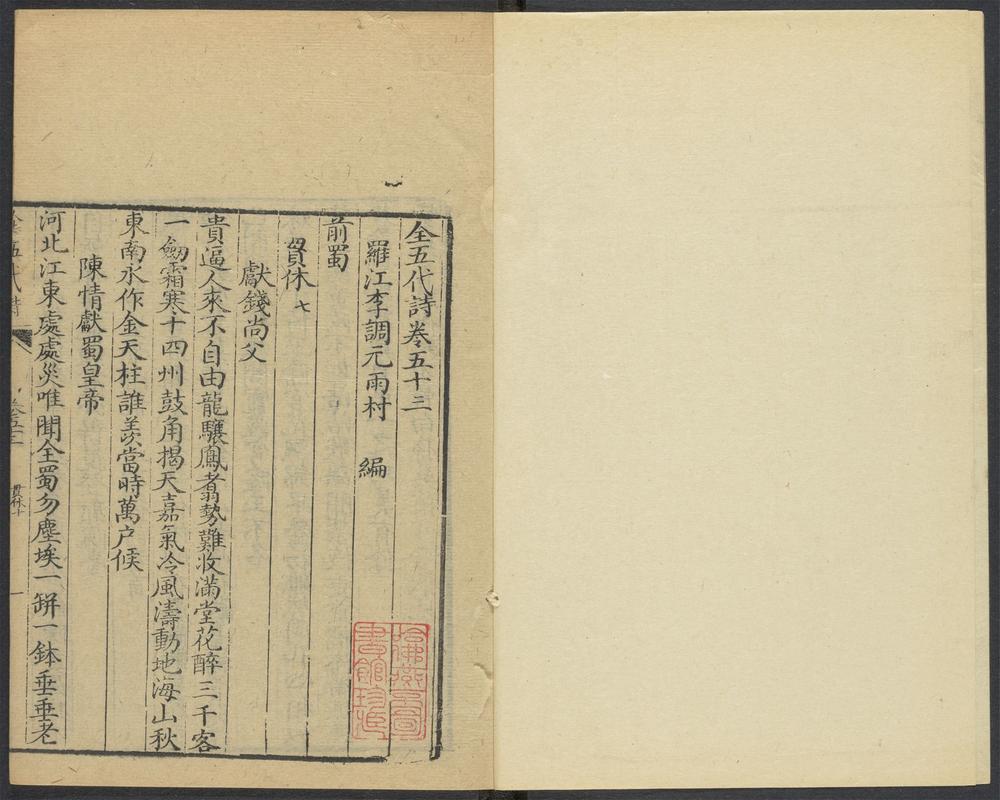 全五代詩卷五十三
羅江李調元雨村 編
前蜀
貫休 七
獻錢尚父
貴逼人來不自由龍驤鳳翥勢難收滿堂花醉三千客
一劒霜寒十四州鼓角揭天嘉氣冷風濤動地海山秋
東南永作金天柱誰羨當時萬户候
陳情獻蜀皇帝
河北江東處處災唯聞全蜀勿塵埃一缾一鉢垂垂老
全五代詩 卷五十三 貫休十 一
哈佛燕京圖書館珍藏